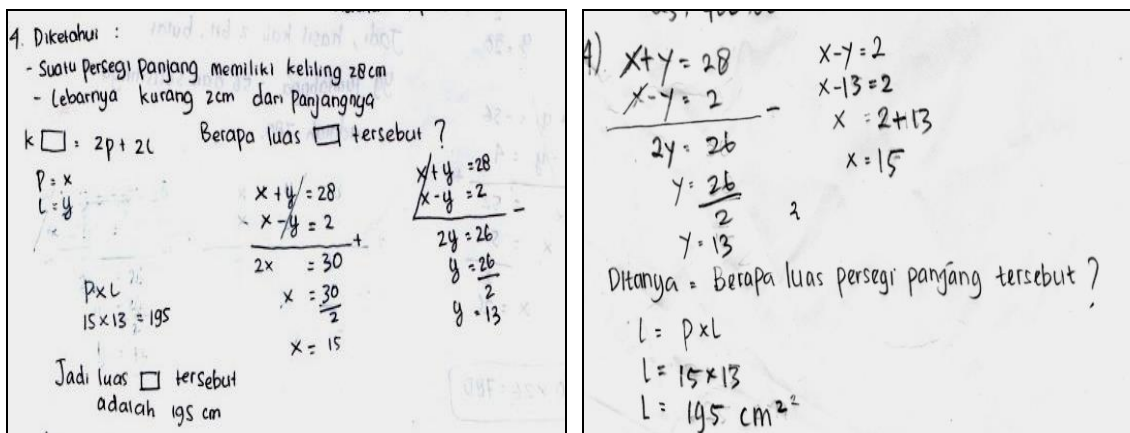 4. Diketahui :
- Suatu Persegi Panjang memiliki keliling 28cm
- Lebarnya kurang 2cm dari Panjangnya
k □ = 2p + 2l
Berapa luas □ tersebut ?
P = x
l = y
x + y = 28
x - y = 2
+
2x = 30
x = 30
2
x = 15
x + y = 28
x - y = 2
-
2y = 26
y = 26
2
y = 13
P x L
15 x 13 = 195
Jadi luas □ tersebut
adalah 195 cm
4)
x + y = 28
x - y = 2
-
2y = 26
y = 26
2
y = 13
x - y = 2
x - 13 = 2
x = 2 + 13
x = 15
2
Ditanya = Berapa luas persegi panjang tersebut ?
L = P x L
L = 15 x 13
L = 195 cm² ²